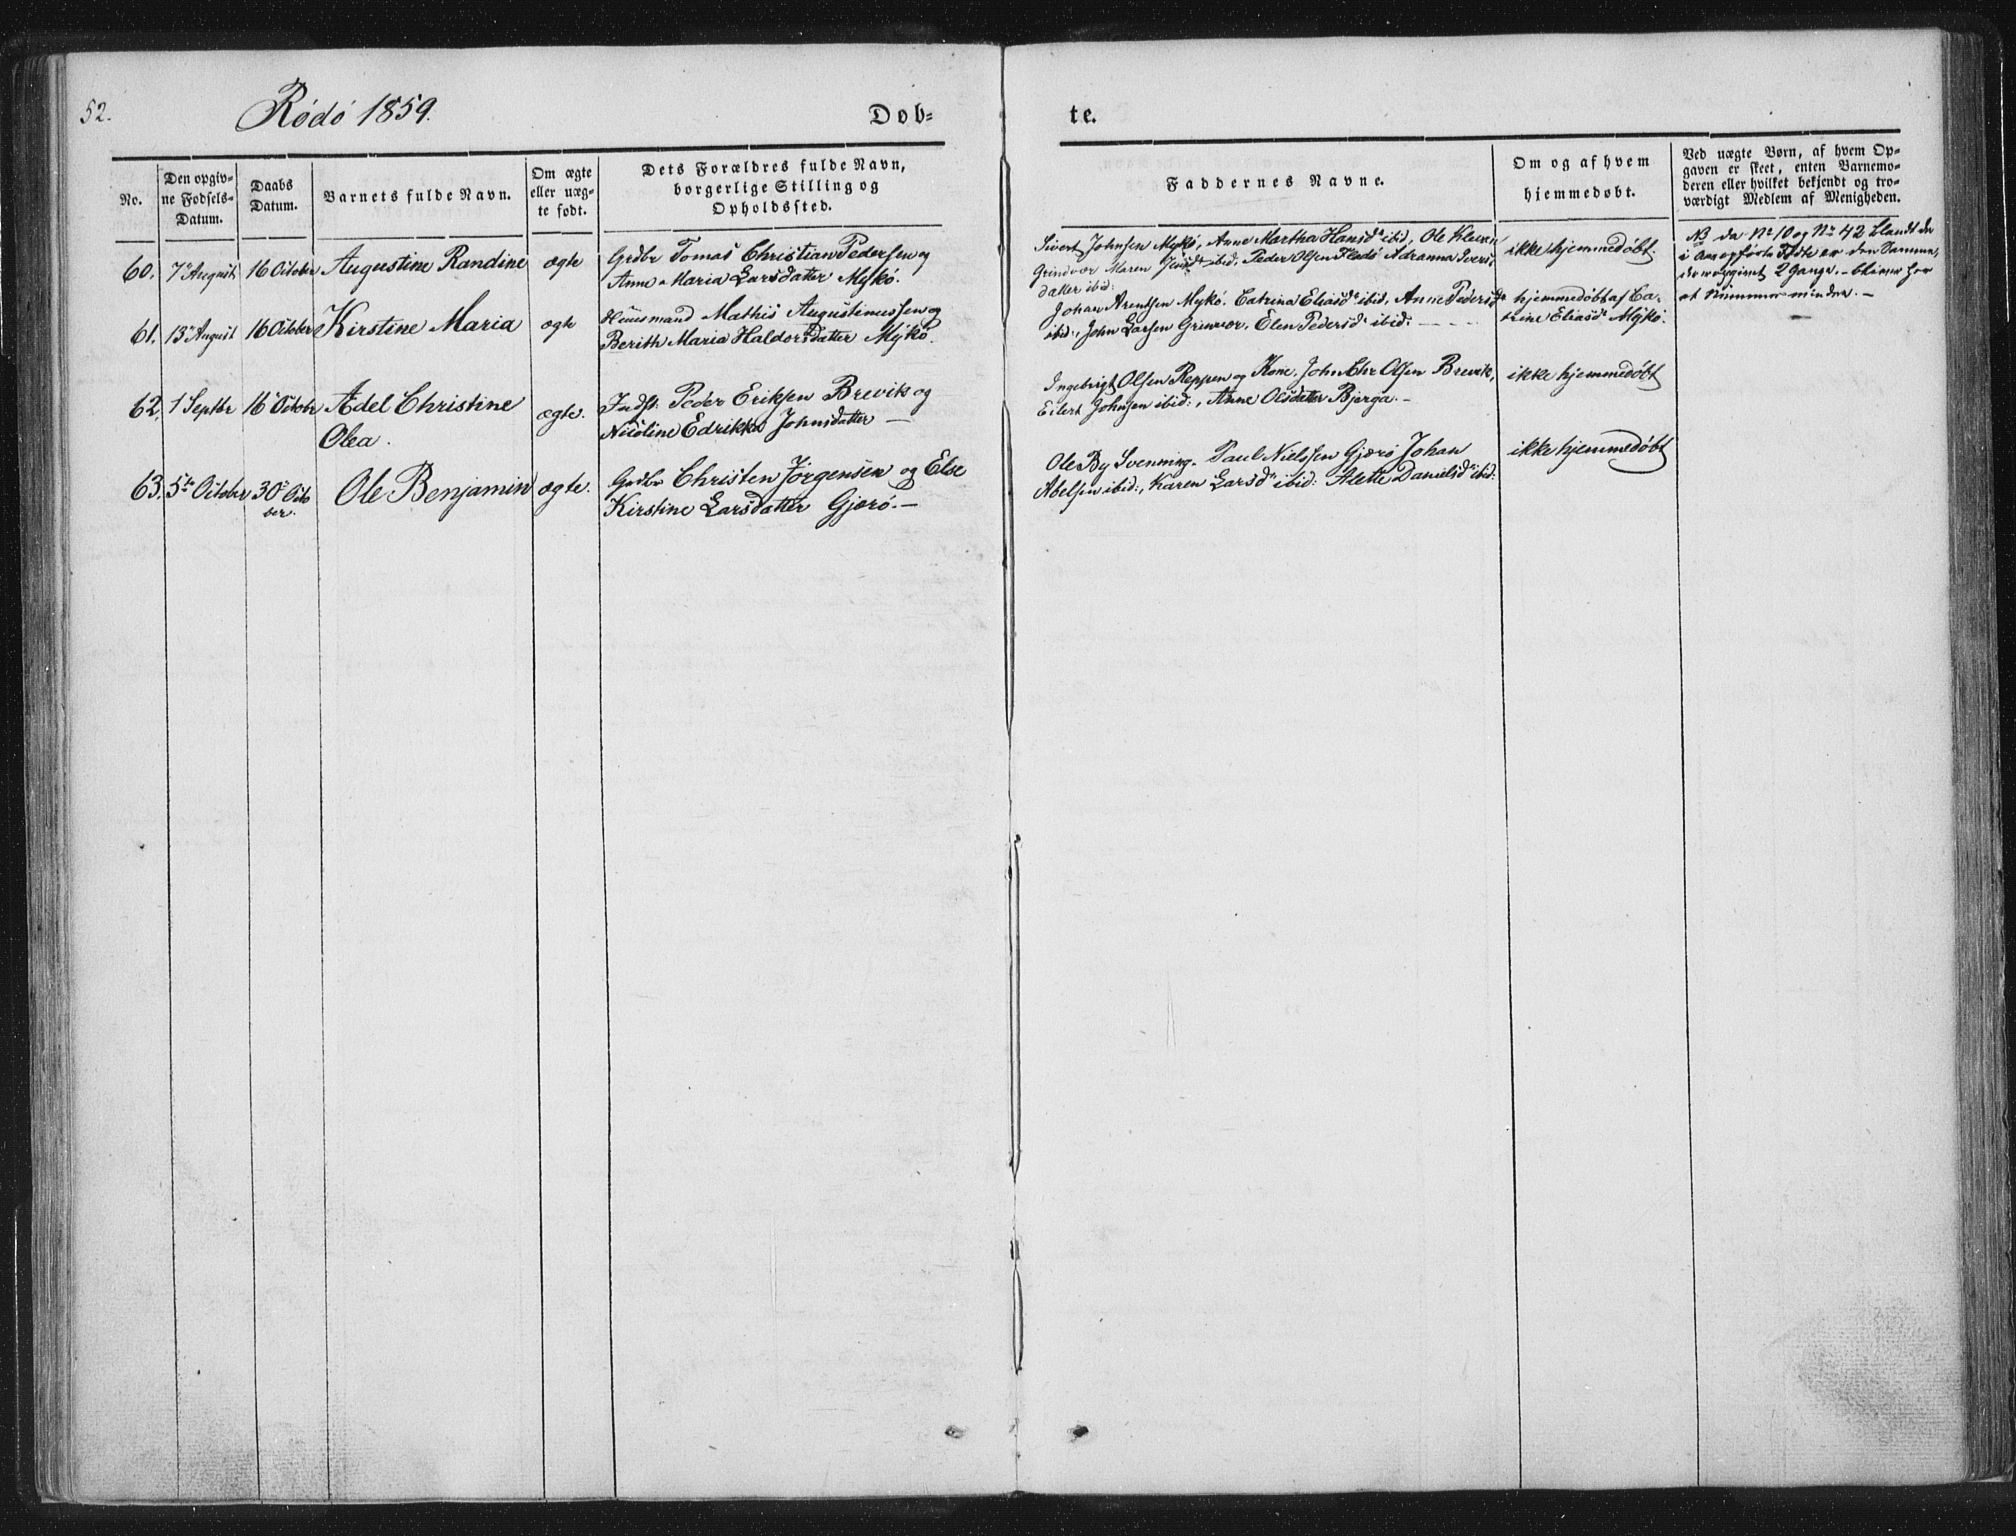 52.
Rödö 1859.
Döb=
te.
No.
Den opgiv-
ne Fødsels-
Datum.
Daabs
Datum.
Barnets fulde Navn.
Om ægte
eller uæg-
te født.
Dets Forældres fulde Navn,
borgerlige Stilling og
Opholdssted.
Faddernes Navne.
Om og af hvem
hjemmedøbt.
Ved uægte Børn, af hvem Op-
gaven er skeet, enten Barnemo-
deren eller hvilket bekjendt og tro-
værdigt Medlem af Menigheden.
60. 7de August 16 October Augustine Randine ægte Grdbr Tomas Christian Pedersen og
Anne Maria Larsdatter Mykö.
Sivert Johnsen Mykö, Anne Martha Hansd. ibid, Ole
Grindvær Maren ibid, Peder Olsen Adranna Ivers,
datter ibid:
ikke hjemmedöbt.
NB da No 10 og No 42 blandt de
i Aar opførte Døbte er den Samme,
2 Gange, bliver her
et Nummer mindre. —
61. 13de August 16 October Kirstine Maria ægte Huusmand Mathis Augustinussen og
Berith Maria Haldorsdatter Mykö.
Johan Arentsen Mykö. Catrina Eliasd. ibid, Anne Pedersd.
ibid:, John Larsen Grinvær, Elen Pedersd. ibid:
hjemmedöbt af Ca-
trine Eliasd. Mykö.
62. 1 Septbr 16 Octobr Adel Christine
Olea.
ægte. Indst. Peder Eriksen Brevik og
Nicoline Edrikka Johnsdatter —
Ingebrigt Olsen Reppen og Kone, John Chr Olsen Brevik,
Eilert Johnsen ibid:, Anne Olsdatter Bjerga. —
ikke hjemmedöbt
63. 5te October 30te Octo
ber.
Ole Benjamin ægte. Grdbr Christen Jörgensen og Else
Kirstine Larsdatter Gjærö. —
Ole By Svenning. Paul Nielssen Gjærö Johan
Abelsen ibid:, Karen Larsd. ibid: Alette Danielsd. ibid:
ikke hjemmedöbt